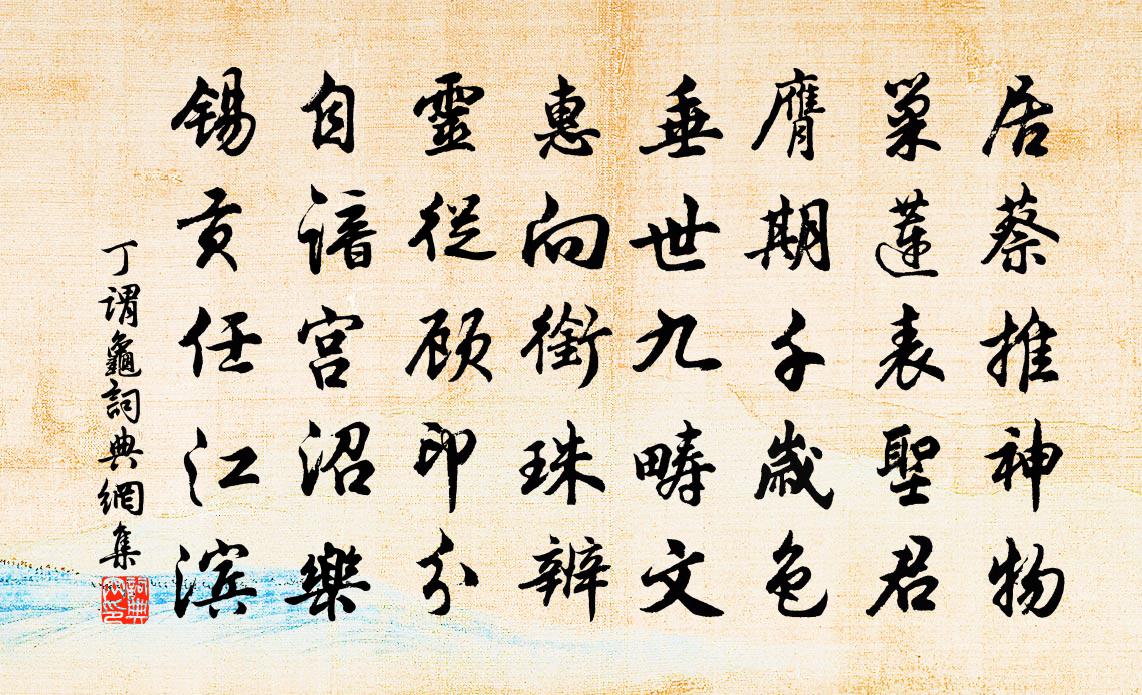 居蔡推神物
巢蓮表聖君
膺期千歲色
垂世九疇文
惠向銜珠辨
靈從顧印分
自諳宮沼樂
錫貢任江濱
丁謂龜詞典網集